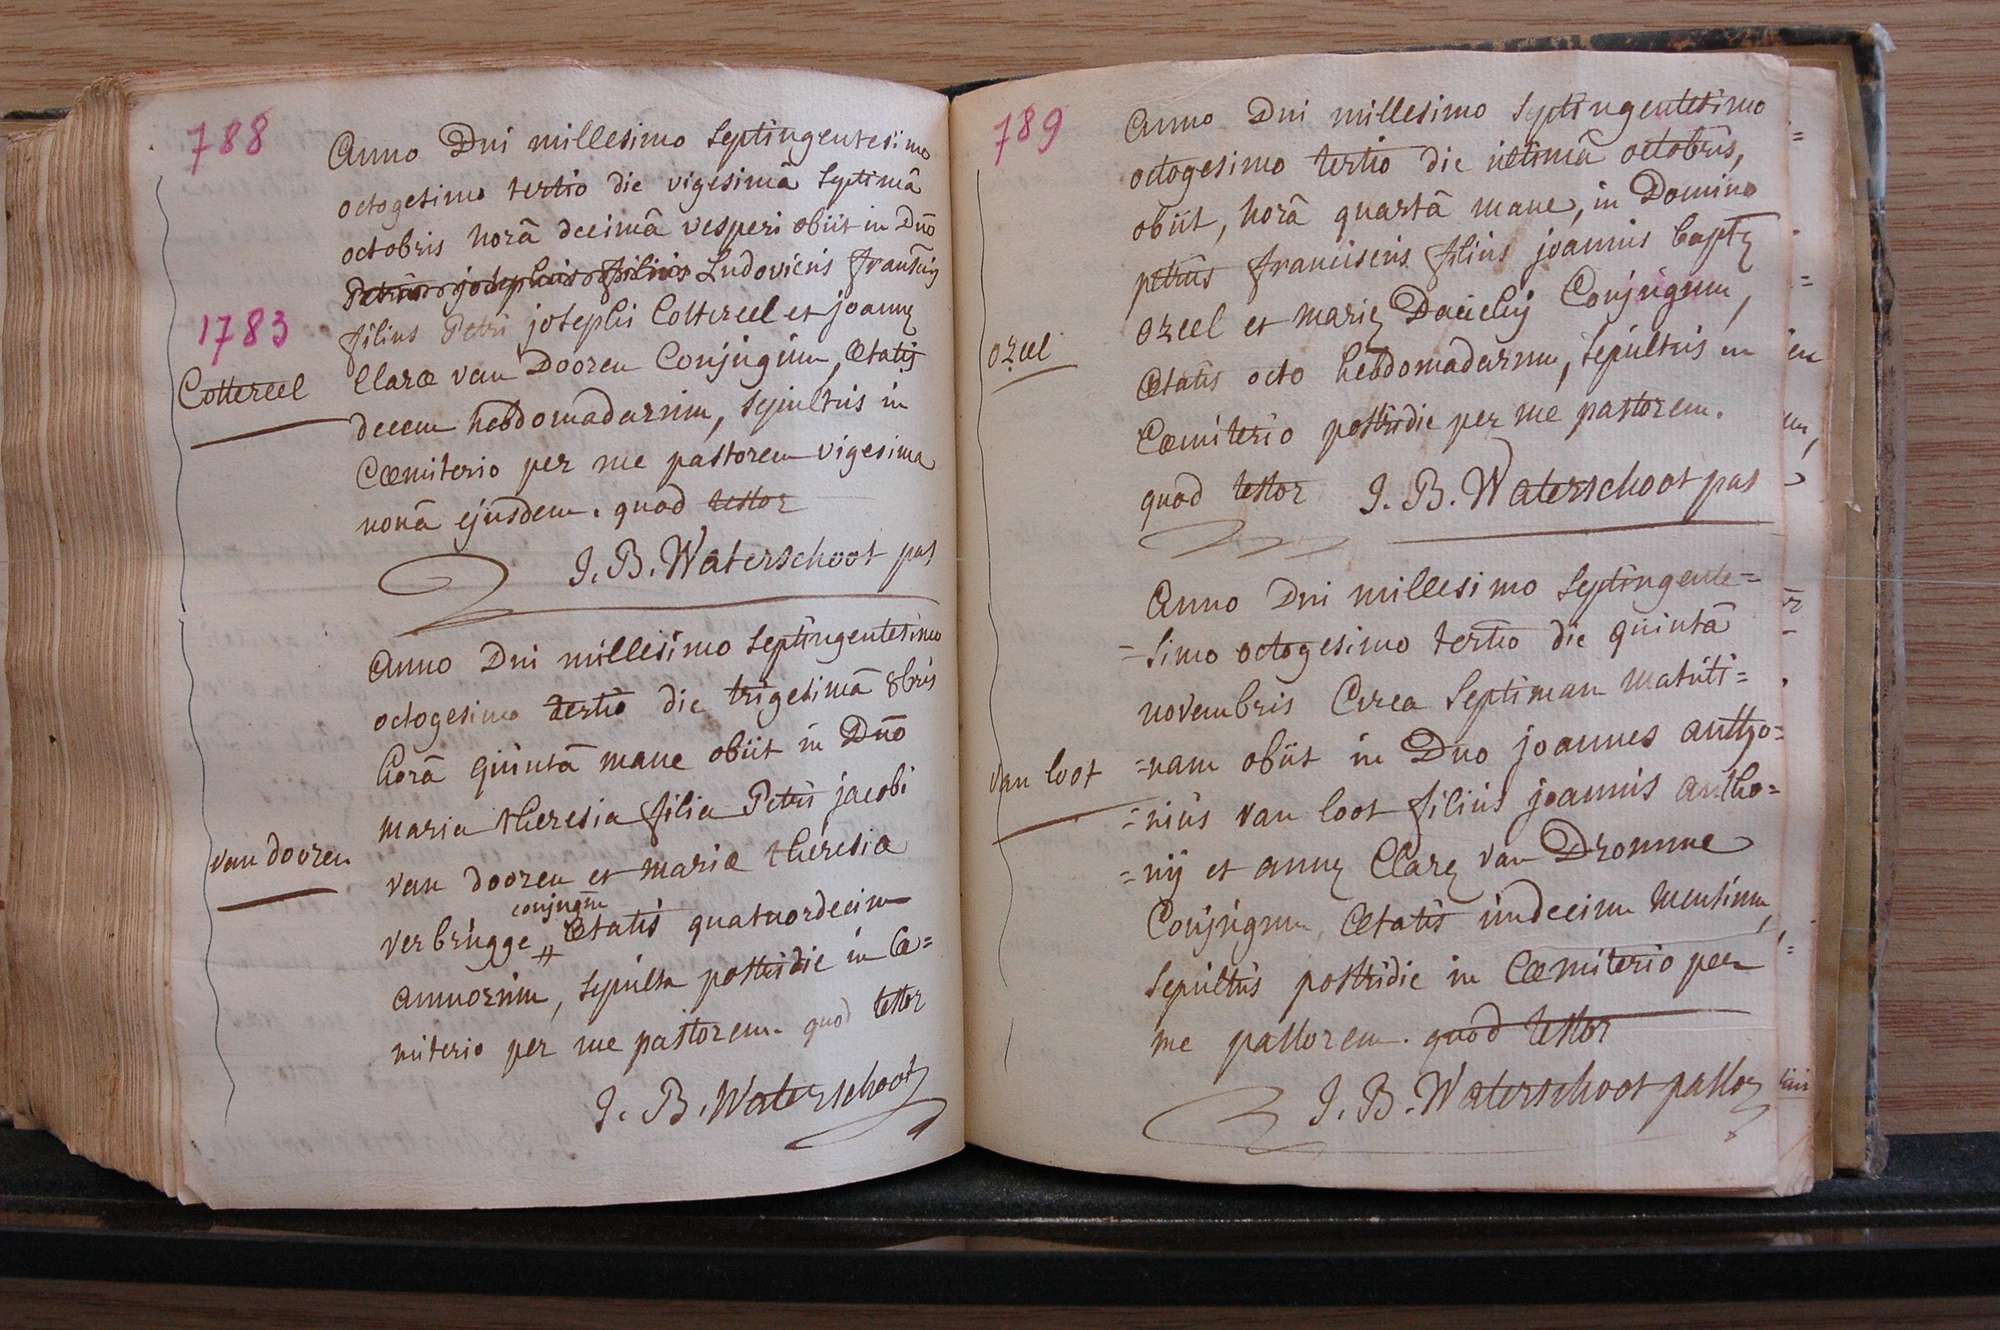 788
Anno Dni millesimo septingentesimo
octogesimo tertio die vigesimâ septimâ
octobris horâ decimâ vesperi obiit in Dnō
Petrus josephus filius Ludovicus franscus
filius Petri josephi Cottereel et joannę
Claræ van Dooren Conjugum, Ætatis
decem hebdomadarum, sepultus in
Cœmiterio per me pastorem vigesima
nonâ ejusdem. quod testor
J. B. Waterschoot pas
1783
Cottereel
Anno Dni millesimo septingentesimo
octogesimo tertio die trigesimâ 8bris
horâ quintâ mane obiit in Dnō
maria theresia filia Petri jacobi
van dooren et mariæ theresiæ
conjugm̄
verbrugge // Ætatis quatuordecim
annorum, sepulta postridie in Cœ=
miterio per me pastorem. quod testor
J. B. Waterschoot
van dooren
789
Anno Dni millesimo septingentesimo
octogesimo tertio die ultimâ octobris,
obiit, horâ quartâ mane, in Domino
petrus franciscus filius joannis baptę
ozeel et marię Conjugum,
Ætatis octo hebdomadarum, sepultus in
Cœmiterio postridie per me pastorem.
quod testor J. B. Waterschoot pas
ozeel
Anno Dni millesimo septingente=
=simo octogesimo tertio die quintâ
novembris Circa septimam matuti=
=nam obiit in Dno joannes antho=
=nius van loot filius joannis antho=
=nij et annę Clarę van Dromme
Conjugum, Ætatis undecim mensium,
sepultus postridie in Cœmiterio per
me pastorem. quod testor
J. B. Waterschoot pastor
van loot